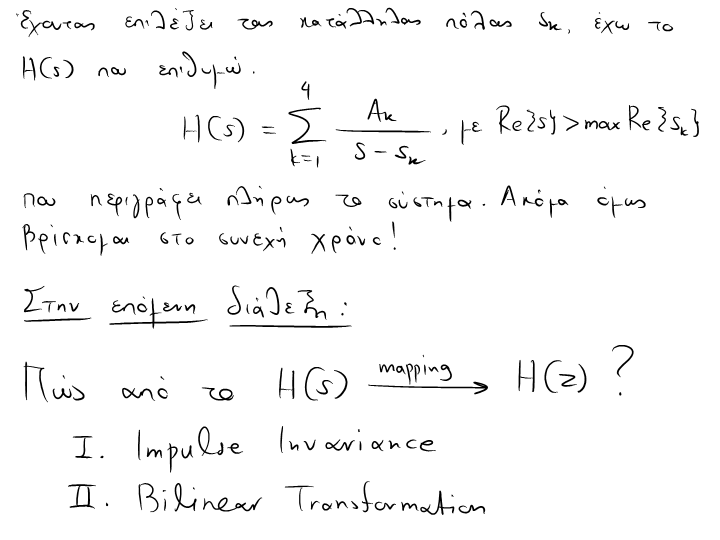 Έχοντας επιλέξει τους κατάλληλους πόλους s_k, έχω το
H(s) που επιθυμώ.
H(s) = \sum_{k=1}^{4} \frac{A_k}{s - s_k}, με Re{s} > max Re{s_k}
που περιγράφει πλήρως το σύστημα. Ακόμα όμως
βρίσκομαι στο συνεχή χρόνο!
Στην επόμενη διάλεξη:
Πώς από το H(s) \xrightarrow{mapping} H(z) ?
I. Impulse Invariance
II. Bilinear Transformation